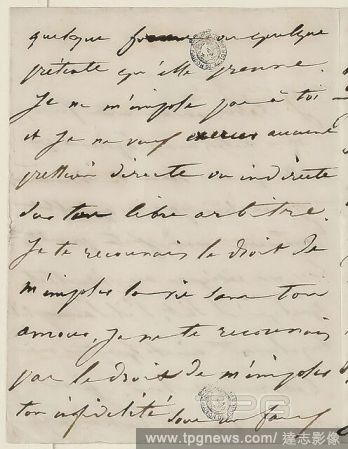 quelque forme ou quelque
prétexte qu'elle prenne.
Je ne m'impose pas à toi
et je ne veux exercer aucune
pression directe ou indirecte
sur ton libre arbitre.
Je te reconnais le droit de
m'imposer la vie sans ton
amour, je ne te reconnais
pas le droit de m'imposer
ton infidélité sous un faux
www.tpgnews.com / 達志影像